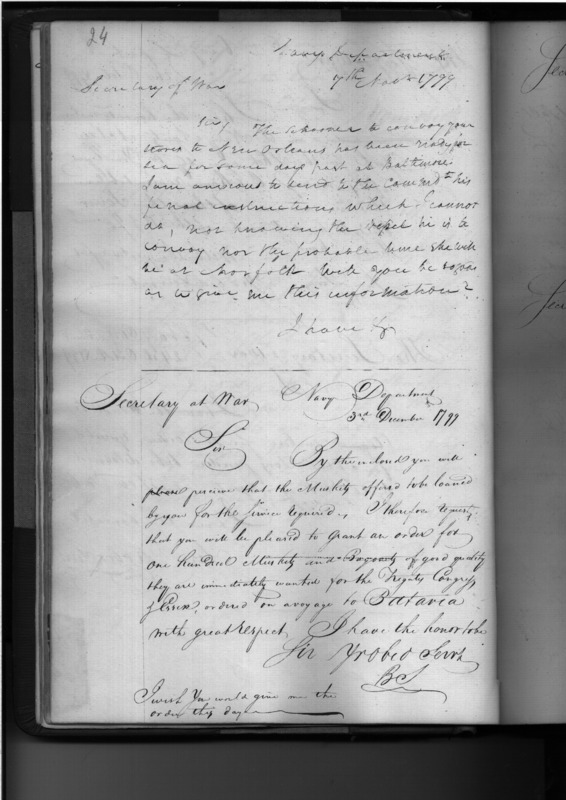 24
Navy Department
7th Novr 1799
Secretary of War
Sir/ The Schooner to convoy your
stores to New Orleans has been ready for
sea for some days past at Baltimore
I am anxious to send to the Commdt his
final instructions which I cannot
do, not knowing the vessel he is to
convoy nor the probable time she will
be at Norfolk will you be so good
as to give me this information?
I have &c
Secretary at War Navy Department
3rd December 1799
Sir
By the enclosed you will
please perceive that the Muskets offered to be loaned
by you for the service required, I therefore request,
that you will be pleased to grant an order for
one hundred Muskets and Bayonets of good quality
they are immediately wanted for the Frigates Congress
& Essex, ordered on a voyage to Batavia
with great respect I have the honor to be
Sir Yr obed Servt
BS
I wish You would give me the
order this day